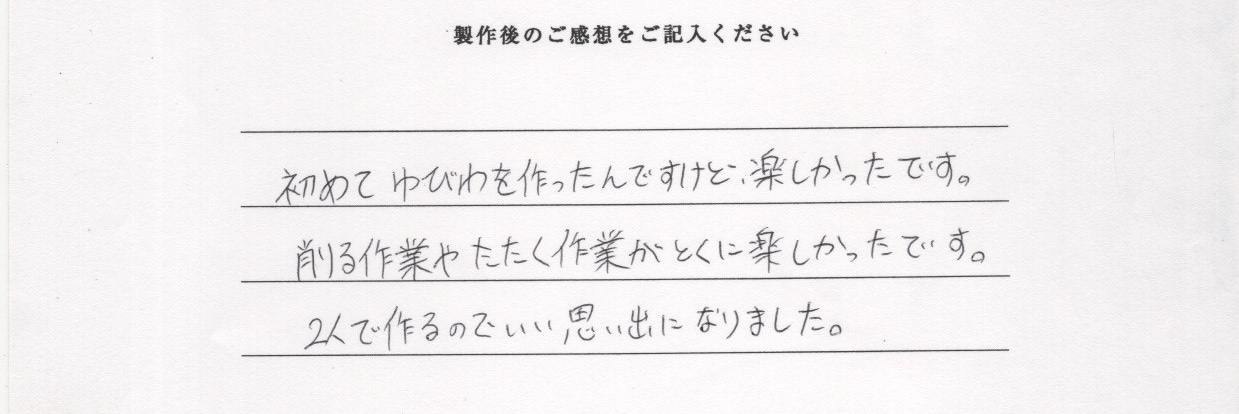 製作後のご感想をご記入ください
初めてゆびわを作ったんですけど、楽しかったです。
削る作業やたたく作業がとくに楽しかったです。
2人で作るのでいい思い出になりました。